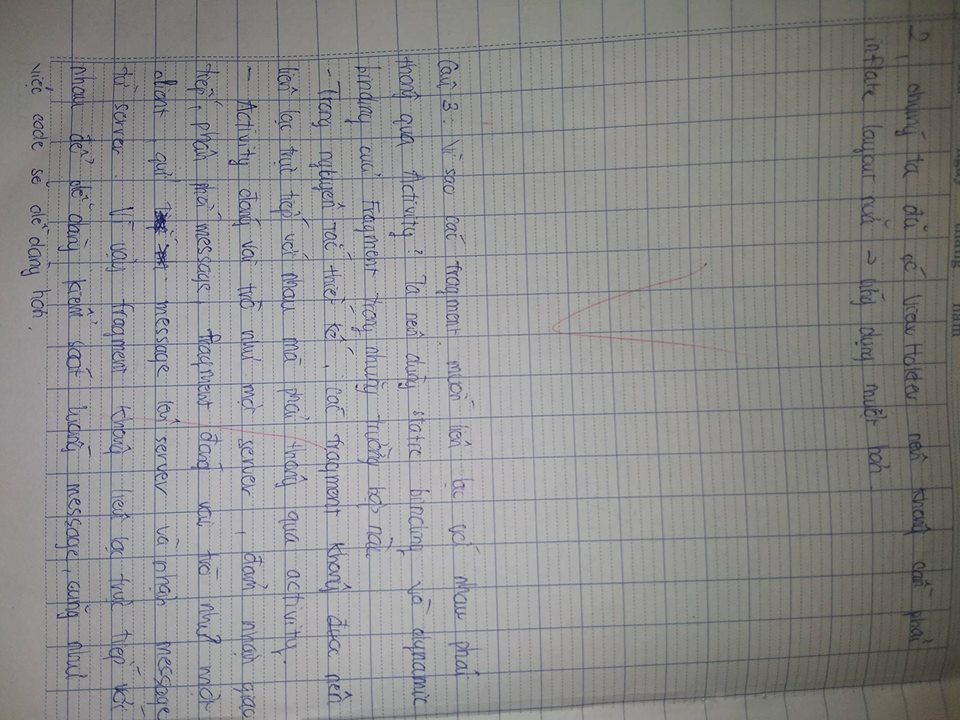 ngày tháng năm
2, chúng ta đã có View Holder nên không cần phải
inflate layout nữa → ứng dụng mượt hơn
Câu 3: Vì sao các fragment muốn liên lạc với nhau phải
thông qua Activity? Ta nên dùng static binding và dynamic
binding của Fragment trong những trường hợp nào.
- Trong nguyên tắc thiết kế, các fragment không được nên
liên lạc trực tiếp với nhau mà phải thông qua activity.
- Activity đóng vai trò như một server, đảm nhận giao
tiếp, phân phối message, fragment đóng vai trò như một
client, gửi message lên server và nhận message
từ server. Vì vậy fragment không liên lạc trực tiếp với
nhau để dễ dàng kiểm soát luồng message, cũng như
việc code sẽ dễ dàng hơn.